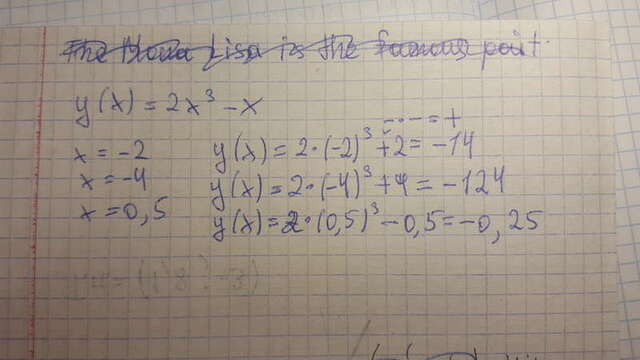 The Mona Lisa is the famous paint
y(x) = 2x³ - x
-·- = +
x = -2 y(x) = 2·(-2)³ + 2 = -14
x = -4 y(x) = 2·(-4)³ + 4 = -124
x = 0,5 y(x) = 2·(0,5)³ - 0,5 = -0,25